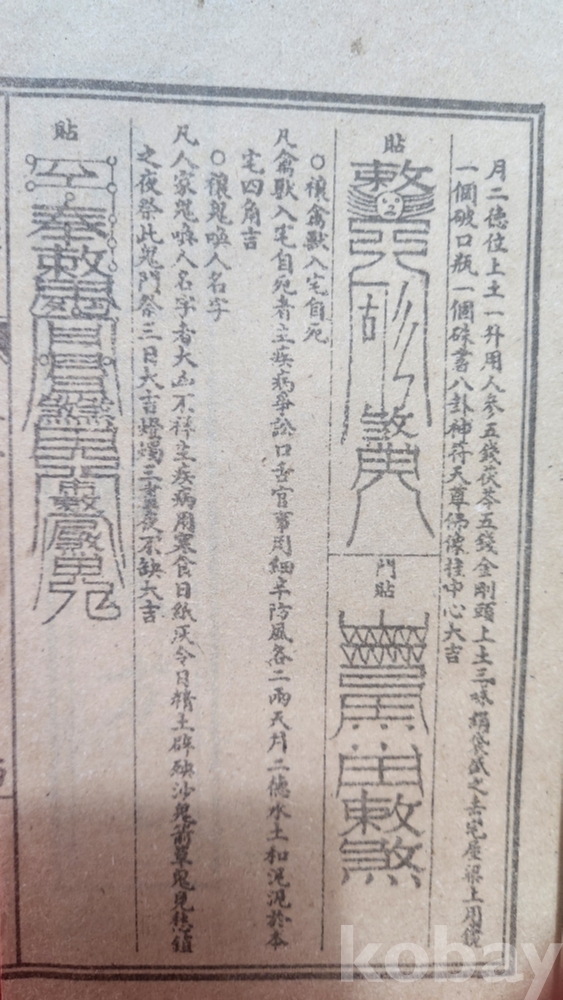 月二德位上土一升用人參五錢茯苓五錢金剛頭上土三味絹袋盛之去宅屋梁上用鏡
一個破口瓶一個硃書八卦神符天尊佛像挂中心大吉
貼
門貼
○禳禽獸入宅自死
凡禽獸入宅自死者主疾病爭訟口舌官事用細辛防風各二兩天月二德水土和泥泥於本
宅四角吉
○禳鬼喚人名字
凡人家鬼喚人名字者大凶不祥主疾病用寒食日紙灰令日精土辟殃沙鬼箭草鬼見愁鎮
之夜祭此鬼門祭三日大吉燈燭三晝夜不缺大吉
貼
kobay